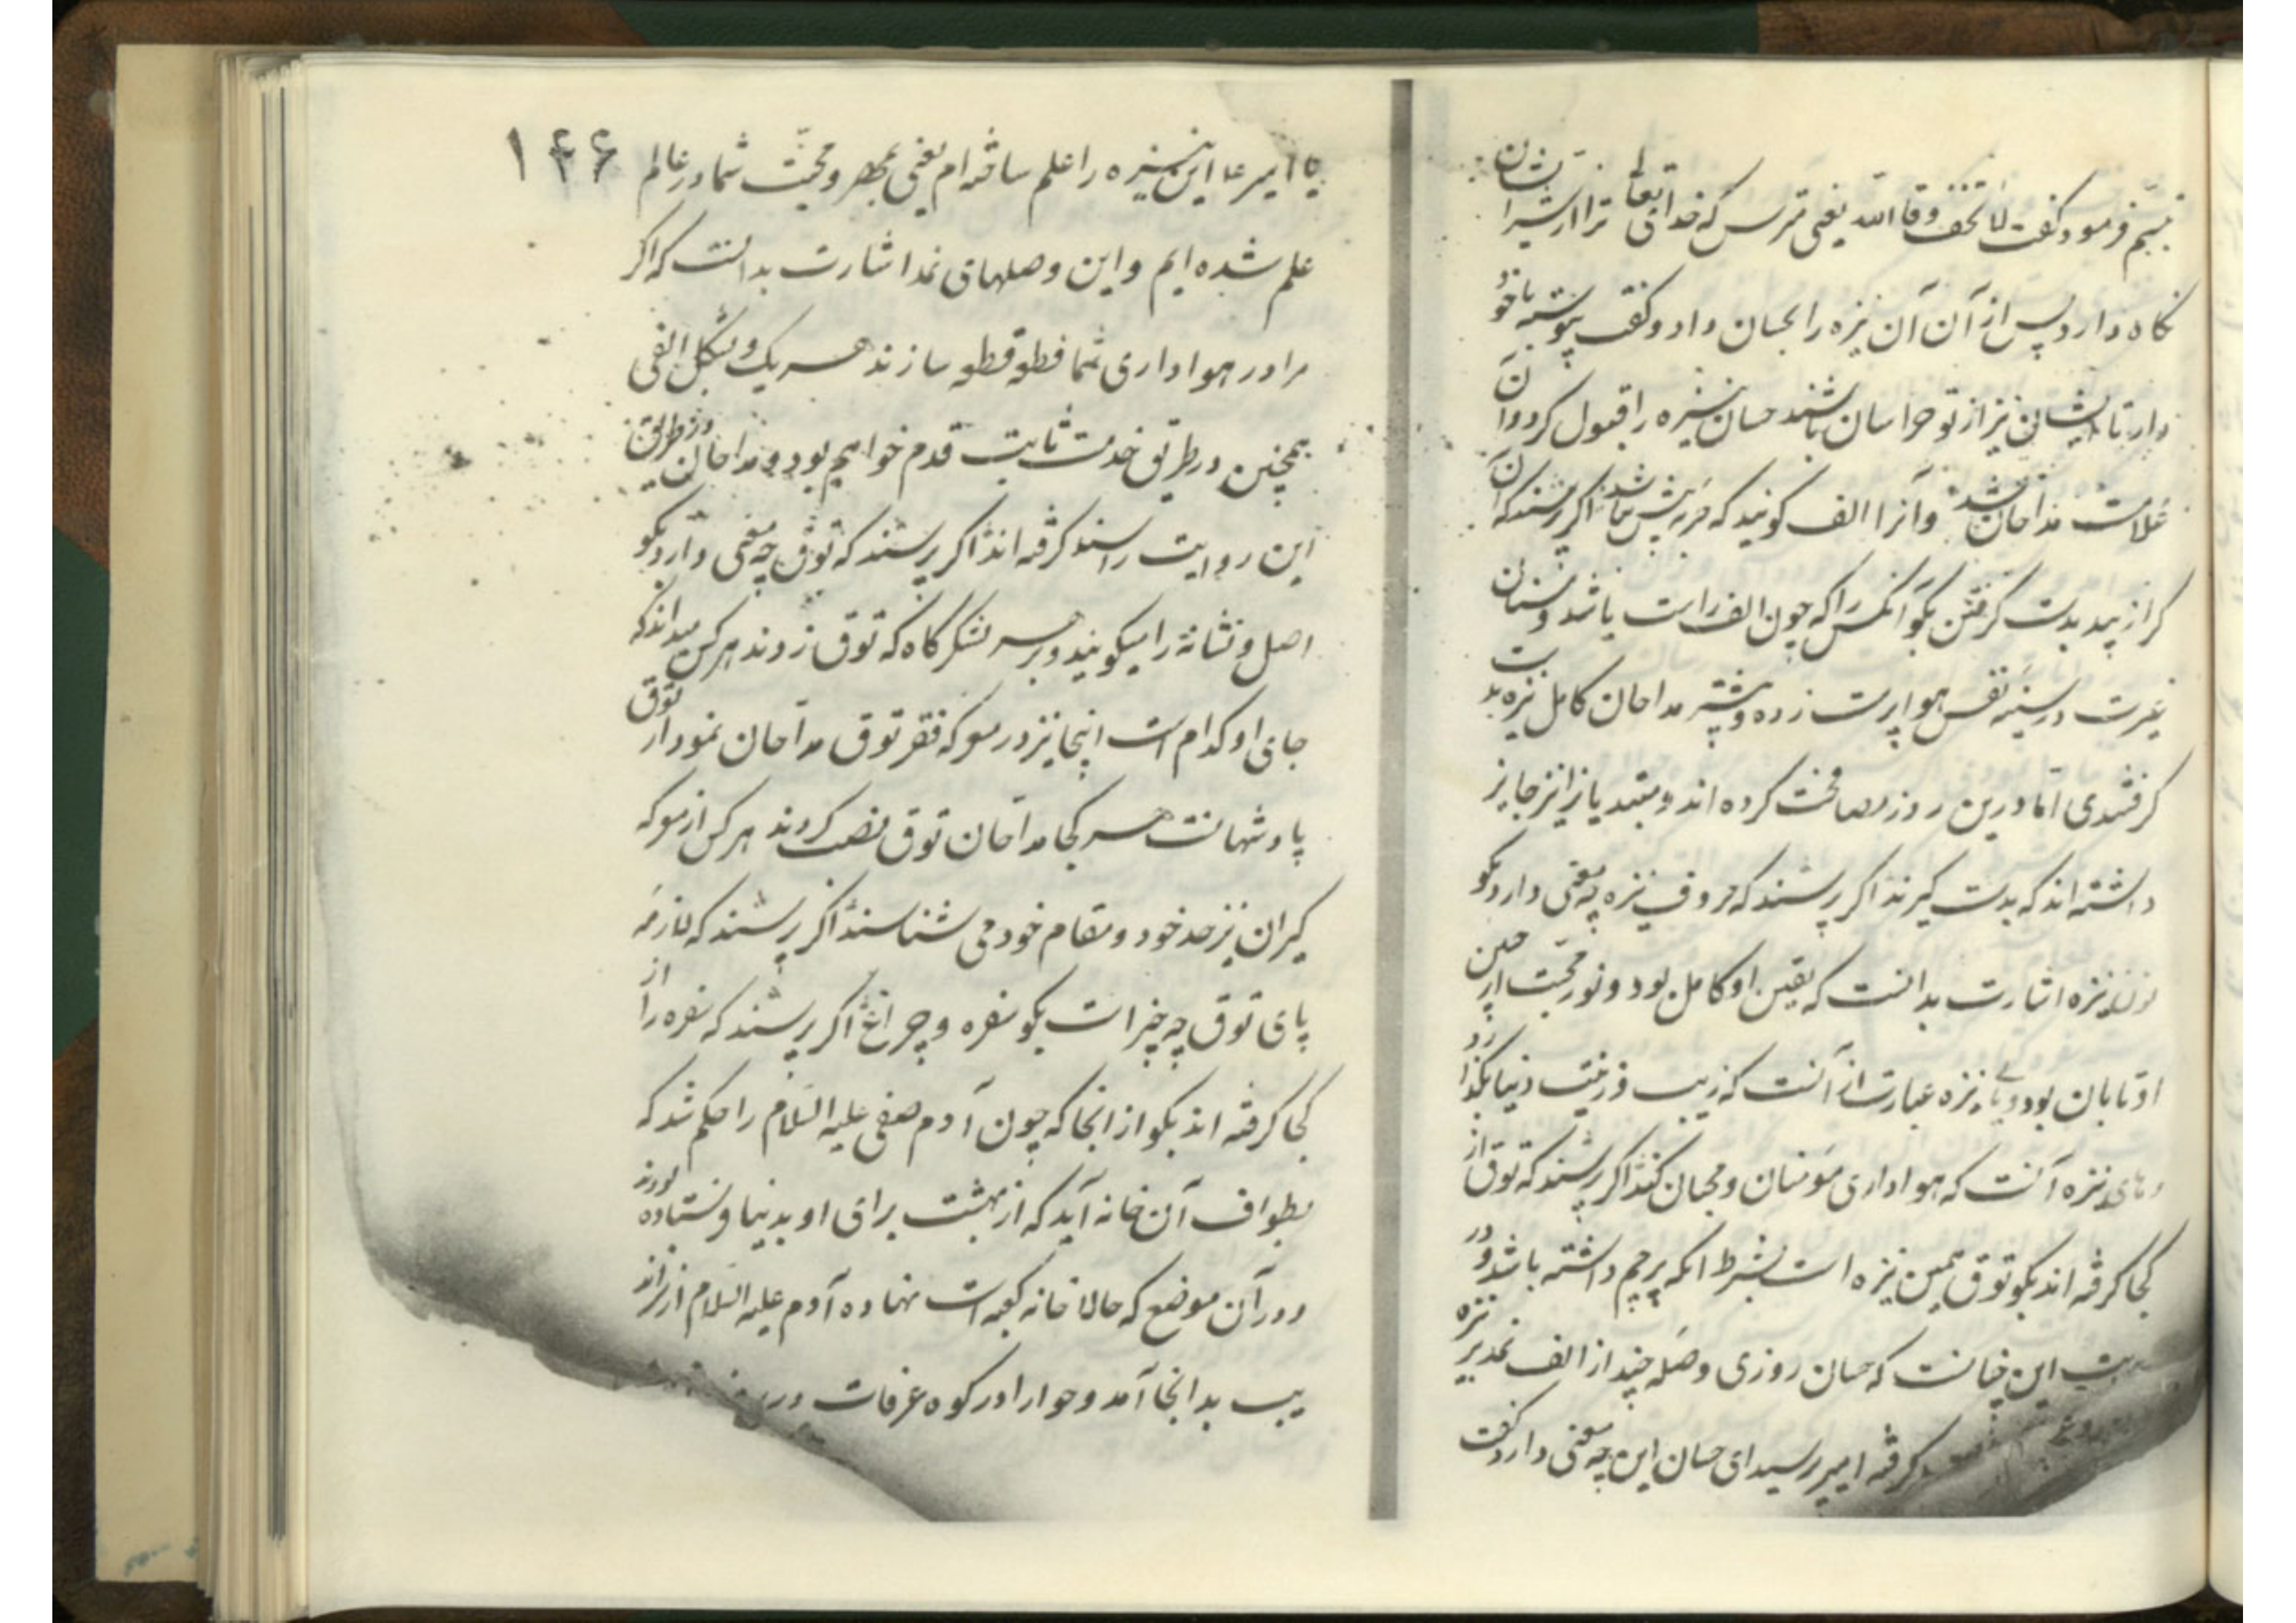 تبسم فرمود و گفت لا تخف وقاک الله یعنی مترس که خدای تعالی ترا از شر ایشان
نگاه دارد پس از آن آن نیزه را بحسان داد و گفت پیوسته با خود
دار تا ایشان نیز از تو هراسان باشند حسان نیزه را قبول کرد و آن
علامت مداحان شد و آنرا الف گویند که حربه پیش باشد اگر پرسند که آن
کرا زیبد بدست گرفتن بگو آنکس را که چون الف راست باشد و سنان
غیرت در سینه نفس هوا پرست زده و پیشتر مداحان کامل نیزه بدست
گرفتندی اما درین روز مصافحت کرده اند و مبتدیانرا نیز جایز
داشته اند که بدست گیرند اگر پرسند که حروف نیزه چه معنی دارد بگو
نون نیزه اشارت بدانست که یقین او کامل بود و نور محبت از جبین
او تابان بود و یاء نیزه عبارت از آنست که زیب و زینت دنیا بگذارد
وهای نیزه آنست که هواداری مؤمنان و محبان کند اگر پرسند که توق از
کجا گرفته اند بگو توق همین نیزه است بشرط آنکه پرچم داشته باشد و در
این چنانست که حسان روزی وصله چند از الف نمد بر نیزه
گرفته امیر پرسید ای حسان این چه معنی دارد گفت
یا امیر ما این نیزه را علم ساخته ام یعنی بمهر و محبت شما در عالم ۱۴۶
علم شده ایم و این وصلهای نمد اشارت بدانست که اگر
مرا در هواداری شما قطعه قطعه سازند هر یک و بشکل الفی
همچنین در طریق خدمت ثابت قدم خواهیم بود و مداحان در طریق
این روایت را سند گرفته اند اگر پرسند که توق چه معنی دارد بگو
اصل و نشانه را میگویند و بر هر لشکرگاه که توق زدند هر کس میداند که
جای او کدام است اینجا نیز در معرکه فقر توق مداحان نمودار توق
پادشهانست هر کجا مداحان توق نصب کردند هر کس از معرکه
گیران نیز حد خود و مقام خود می شناسند اگر پرسند که لازمه
پای توق چه چیز است بگو سفره و چراغ اگر پرسند که سفره را از
کجا گرفته اند بگو از انجا که چون آدم صفی علیه السلام را حکم شد که
بطواف آن خانه آید که از بهشت برای او بدنیا فرستاده بودند
و در آن موضع که حالا خانه کعبه است نهاده آدم علیه السلام از سراندیب
بدانجا آمد و حوا را در کوه عرفات